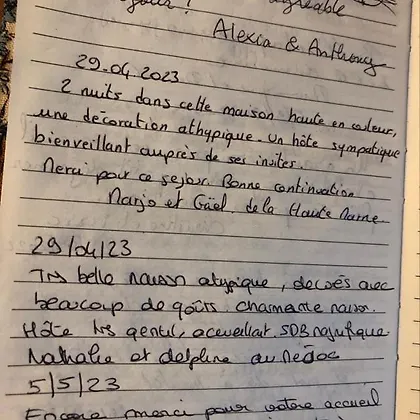 jour ! agréable
Alexia & Anthony
29.04.2023
2 nuits dans cette maison haute en couleur,
une décoration athypique. Un hôte sympatique
bienveillant auprès de ses invites.
Merci pour ce sejour. Bonne continuation
Marjo et Gaël. de la Haute Marne
29/04/23
Très belle maison atypique, decorés avec
beaucoup de goûts charmante maison.
Hôte très gentil, acceuillant. SDB magnifique
Nathalie et delphine du Médoc
5/5/23
Encore merci pour votre accueil